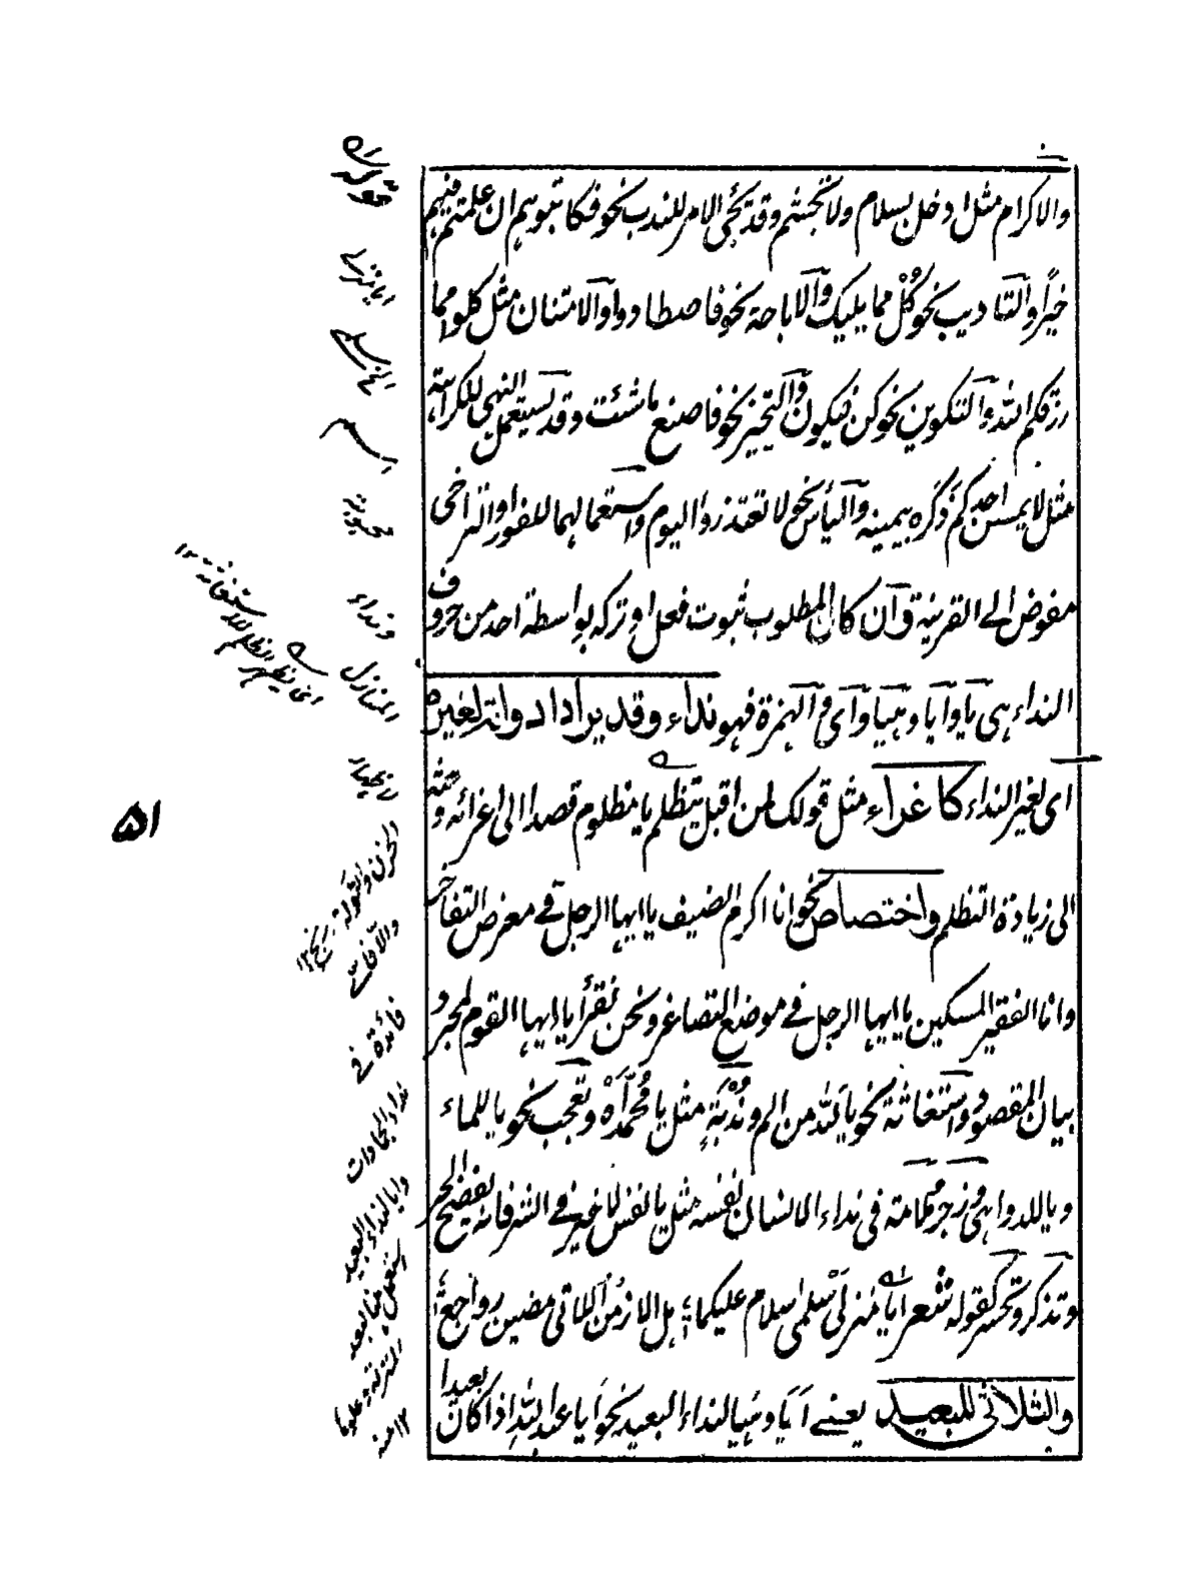 والاكرام مثل ادخل بسلام ولا تحتشم وقد يجئ الامر للندب نحو فكاتبوهم ان علمتم فيهم
خيرًا والتاديب نحو كُلْ مما يليك والاباحة نحو فاصطادوا والامتنان مثل كلوا مما
رزقكم الله والتكوين نحو كن فيكون والتخيير نحو فاصنع ما شئت وقد يستعمل النهي للكراهة
مثل لا يمسن احدكم ذكره بيمينه واليأس نحو لا تعتذروا اليوم واستعمالهما للفور او التراخى
مفوض الى القرينة وآن كان المطلوب ثبوت فعل او تركه بواسطة احد من حروف
النداء هى يا وآيا وهيا وآى و الهمزة فهو نداء وقد يراد ادواته لغيره
اى لغير النداء كاغراء مثل قولك لمن اقبل يتظلم يا مظلوم قصدا الى اغرائه وحثه
الى زيادة التظلم واختصاص نحو انا اكرم الضيف يا ايها الرجل في معرض التفاخر
وانا الفقير المسكين يا ايها الرجل في موضع التصاغر ونحن نقرأ يا ايها القوم لمجرد
بيان المقصود واستغاثة نحو يا لله من الم ونُدْبَةٍ مثل يا مُحَمَّدَاهْ وتعجب نحو يا للماء
ويا للدواهى وزجر وملامة فى نداء الانسان نفسه مثل يا نفس لا خير في الشر فانه يفضح الحر
وتذكر وتحسر كقوله شعر ايا مَنزلَىْ سَلْمى سلام عليكما؛ هل الازمُن اللاتى مضين رواجعُ
والثلاثى للبعيد يعنے آيا وهيا لنداء البعيد نحو ايا عبد الله اذا كان بعيدا
قوله
ايا منزلے
سلمى
محبوبة
ونداء
المنازل
لاظهار
الحزن
فائدة في
نداء الجمادات
وايا لنداء البعيد
١٢ منه
اى يظهر الظلم للاستغاثة ١٢
٥١